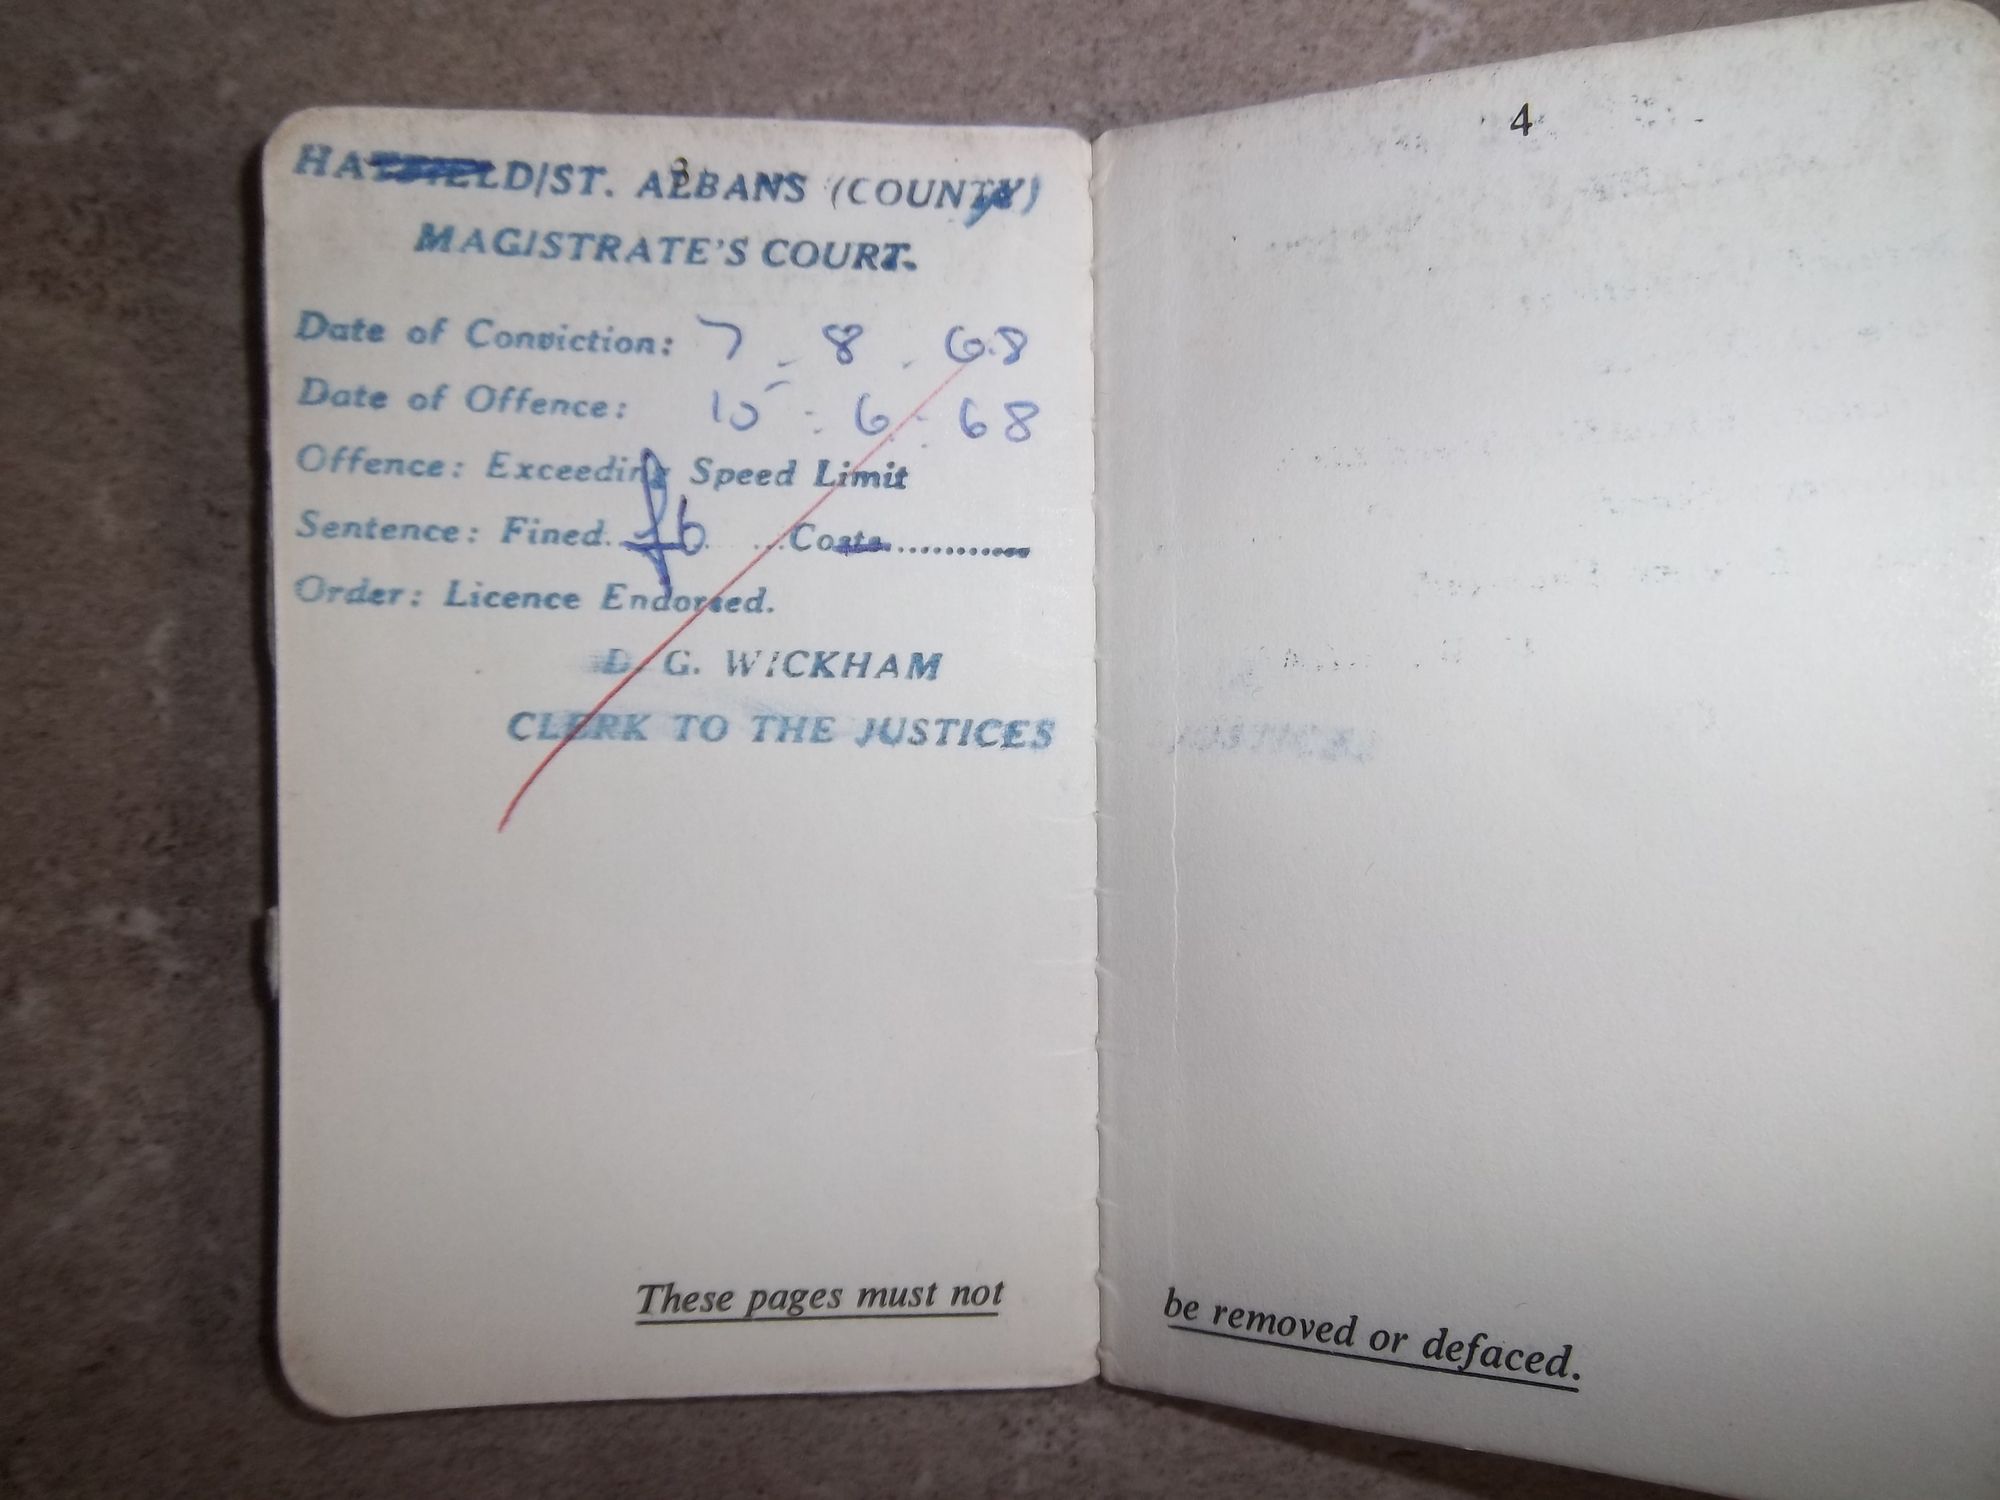 3
HATFIELD/ST. ALBANS (COUNTY)
MAGISTRATE'S COURT.
Date of Conviction: 7 . 8 . 68
Date of Offence: 15 : 6 : 68
Offence: Exceeding Speed Limit
Sentence: Fined. £6 ...Costs............
Order: Licence Endorsed.
D. G. WICKHAM
CLERK TO THE JUSTICES
These pages must not
4
be removed or defaced.